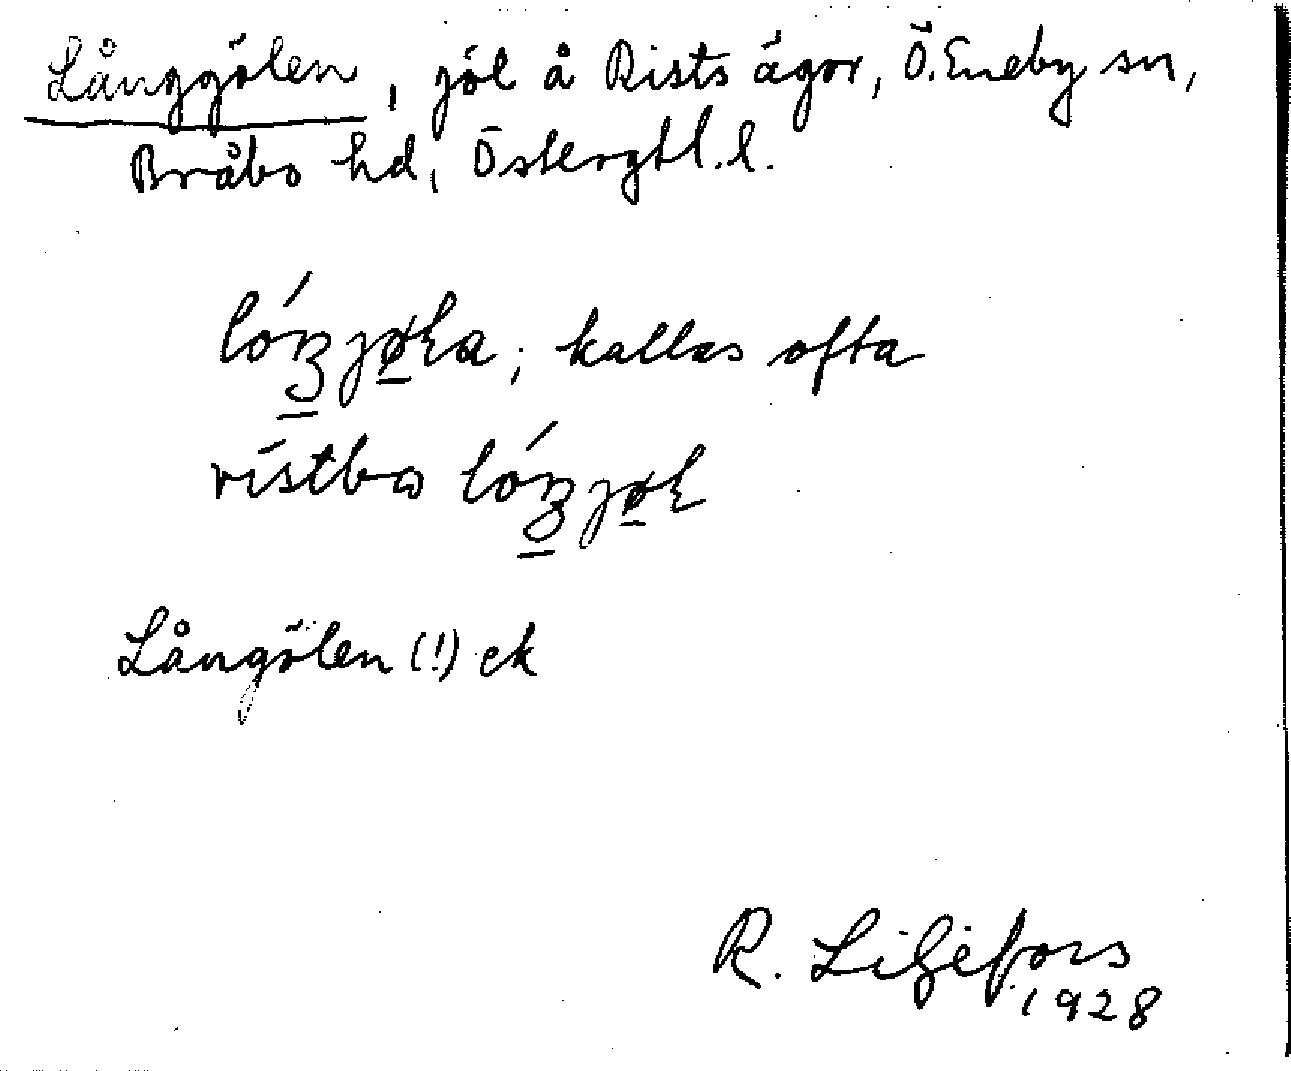 Långgölen, göl å Rists ägor, Ö. Eneby sn,
Bråbo hd, Östergtl. l.
kallas ofta
Långölen (!) ek
R. Liljefors
1928